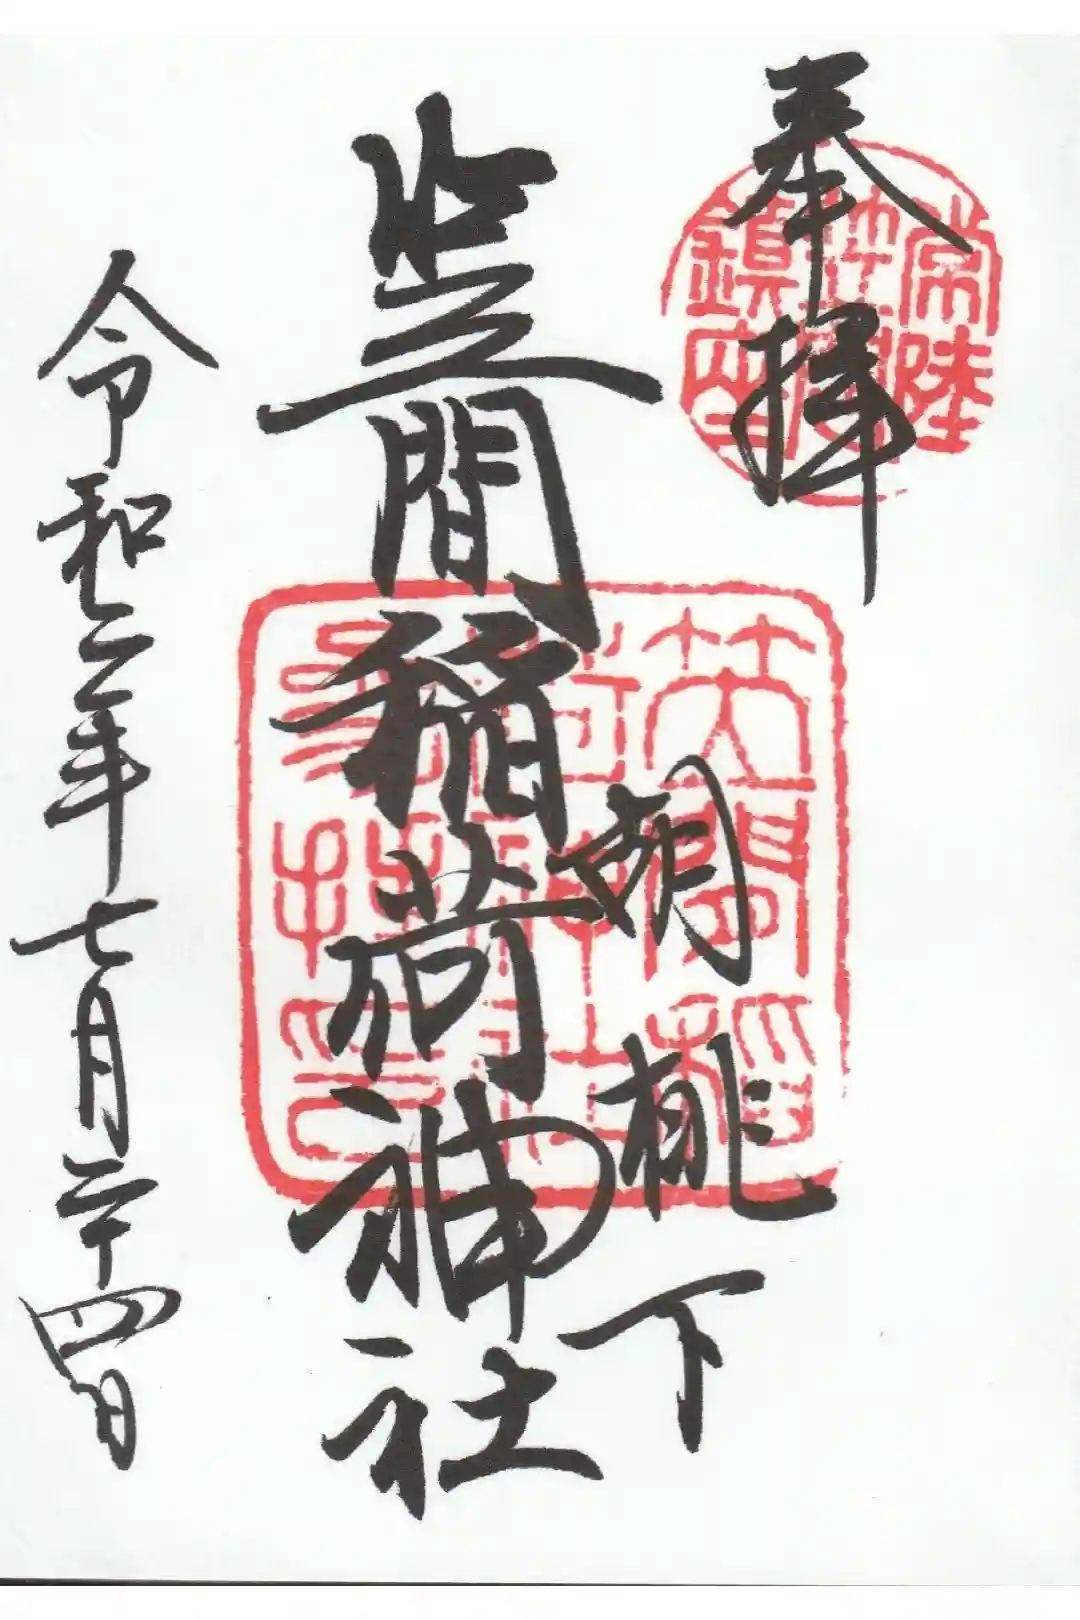 奉拝
胡桃下
笠間稲荷神社
令和二年七月二十四日
常陸
鎮座
笠間稲
荷神社